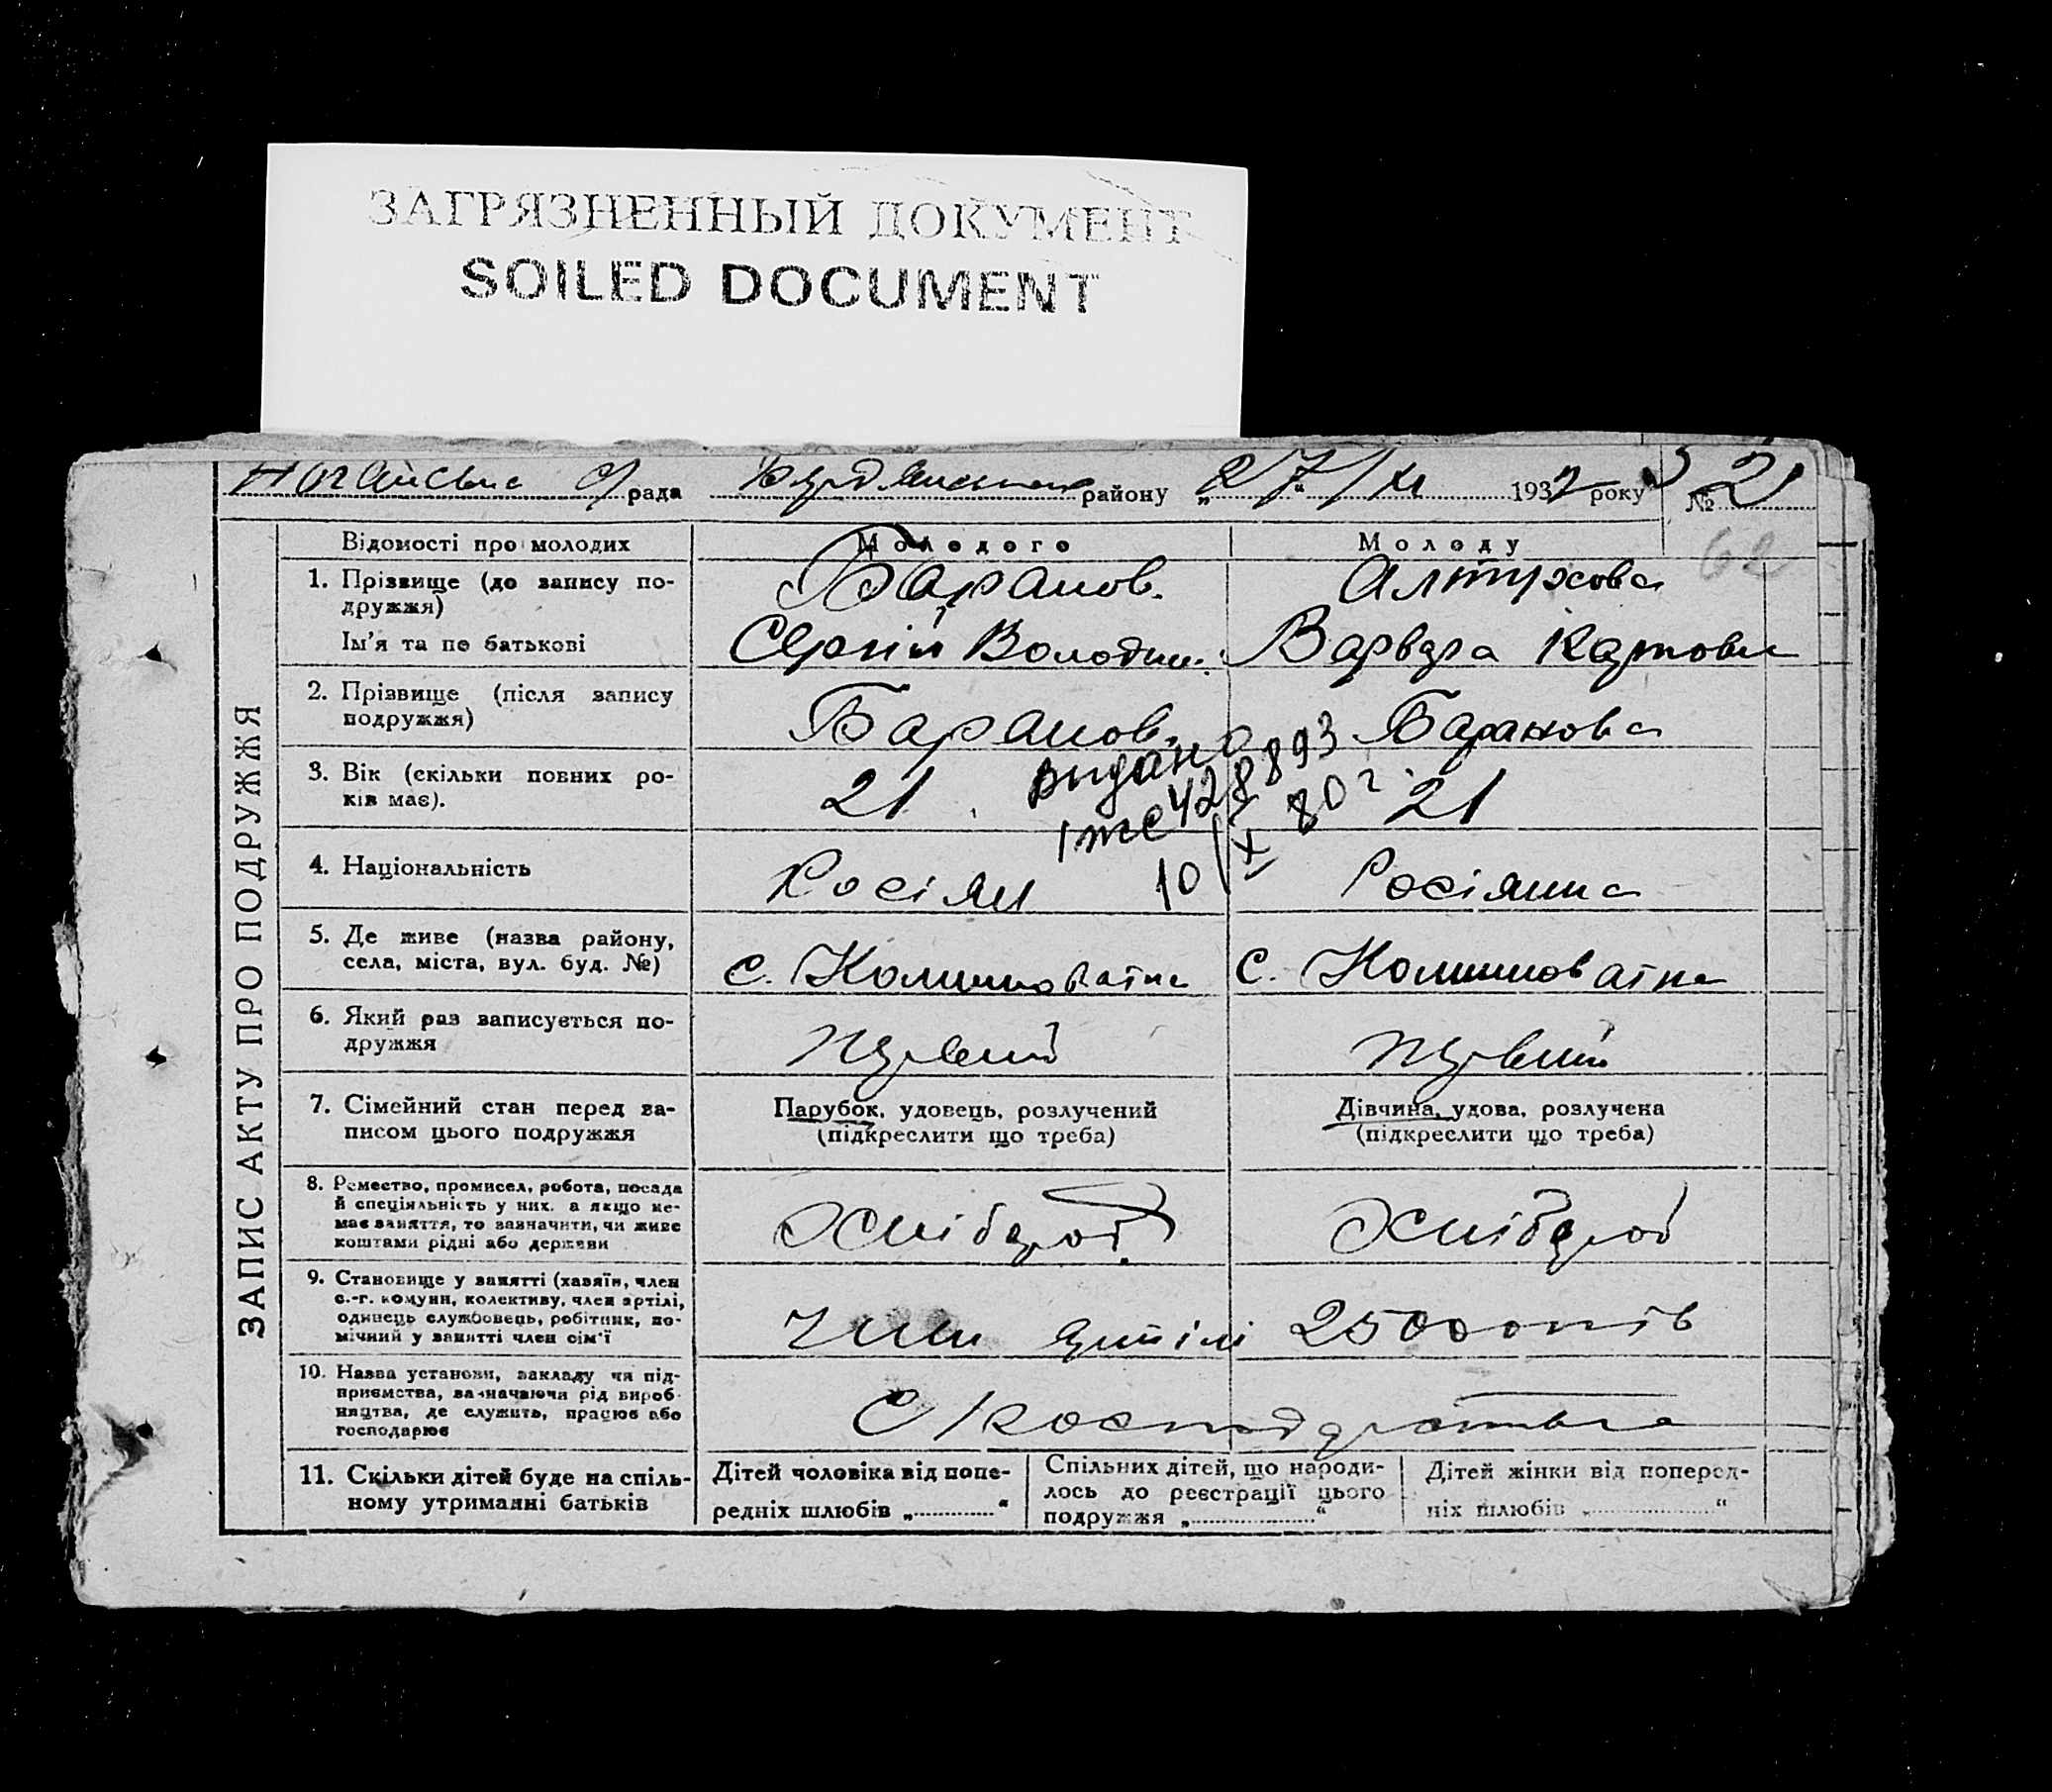 ЗАГРЯЗНЕННЫЙ ДОКУМЕНТ
SOILED DOCUMENT
рада району 27/XI 193 року № 21
62
ЗАПИС АКТУ ПРО ПОДРУЖЖЯ
Відомості про молодих Молодого Молоду
1. Прізвище (до запису по-
дружжя)
Баранов. Алтухова
Ім'я та по батькові Сергій Володим. Варвара Карповна
2. Прізвище (після запису
подружжя)
Баранов Баранова
3. Вік (скільки повних ро-
ків має).
21 21
видано
428893
10/X 80 г
4. Національність Росіян Росіянка
5. Де живе (назва району,
села, міста, вул. буд. №)
с. с.
6. Який раз записується по-
дружжя
перший перший
7. Сімейний стан перед за-
писом цього подружжя
Парубок, удовець, розлучений
(підкреслити що треба)
Дівчина, удова, розлучена
(підкреслити що треба)
8. Ремество, промисел, робота, посада
й спеціяльність у них, а якщо не-
має заняття, то зазначити, чи живе
коштами рідні або держави
Хлібороб. Хлібороб
9. Становище у занятті (хазяїн, член
с.-г. комуни, колективу, член артілі,
одинець службовець, робітник, по-
мічний у занятті член сім'ї
Член артілі
10. Назва установи, закладу чи під-
приємства, зазначаючи рід вироб-
ництва, де служить, працює або
господарює
11. Скільки дітей буде на спіль-
ному утриманні батьків
Дітей чоловіка від попе-
редніх шлюбів „ “
Спільних дітей, що народи-
лось до реєстрації цього
подружжя „ “
Дітей жінки від поперед-
ніх шлюбів „ “